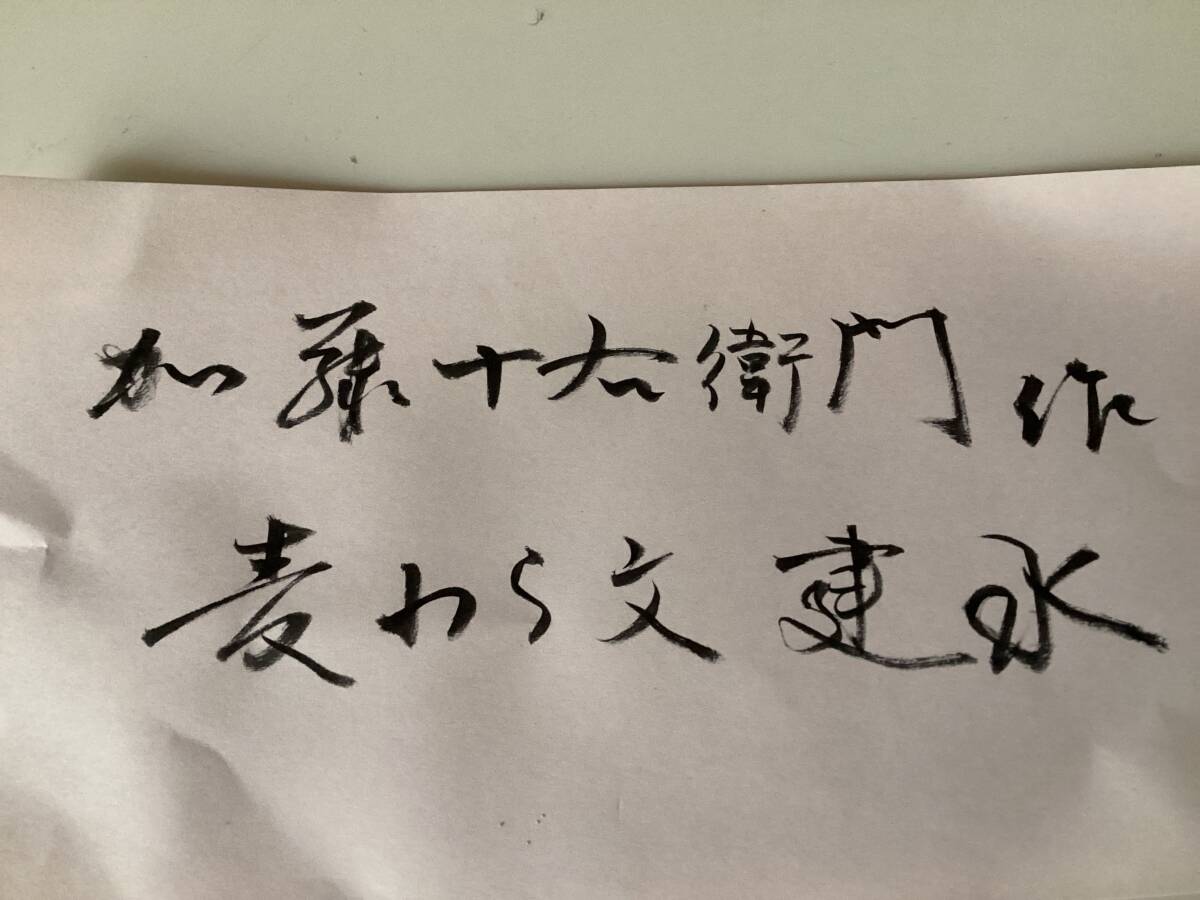 加藤十右衛門 作
麦わら文 建水